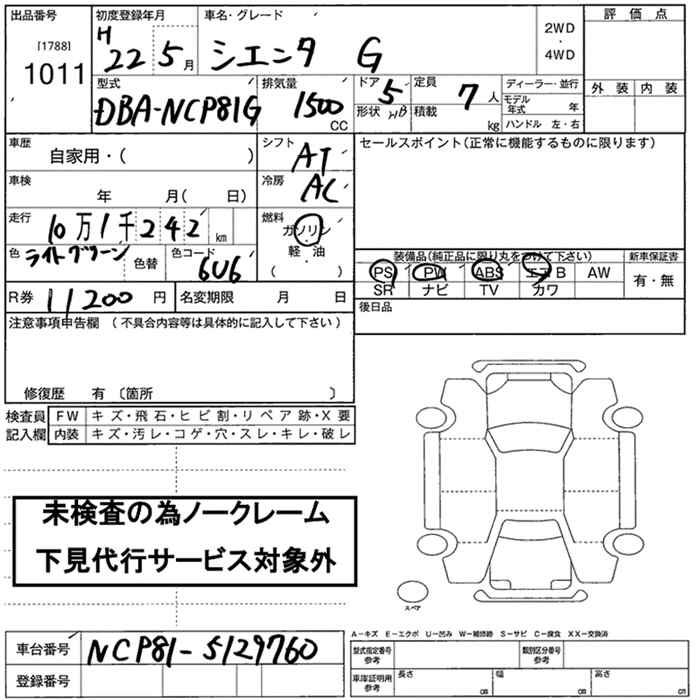 出品番号 初度登録年月 車名・グレード 2WD・4WD 評価点
[1788]
1011
H 22 5月 シエンタ G
外装 内装
型式 排気量 ドア 5 定員 7人 ディーラー・並行
DBA-NCP81G 1500 CC 形状 HB 積載 kg モデル年式 年
ハンドル 左・右
車歴 自家用・( ) シフト AT セールスポイント(正常に機能するものに限ります)
車検 年 月( 日) 冷房 AC
走行 10万1千242 km 燃料 ガソリン
軽・油
( )
色 ライトグリーン 色替 色コード 6U6
装備品(純正品に限り丸をつけて下さい) 新車保証書
PS PW ABS エアB AW 有・無
SR ナビ TV カワ
R券 11200 円 名変期限 月 日 後日品
注意事項申告欄 (不具合内容等は具体的に記入して下さい)
修復歴 有 〔箇所 〕
検査員 FW キズ・飛石・ヒビ割・リペア跡・X要
記入欄 内装 キズ・汚レ・コゲ・穴・スレ・キレ・破レ
未検査の為ノークレーム
下見代行サービス対象外
スペア
A-キズ E-エクボ U-凹み W-補修跡 S-サビ C-腐食 XX-交換済
車台番号 NCP81-5129760
登録番号
型式指定番号 参考 類別区分番号 参考
車庫証明用 参考 長さ cm 幅 cm 高さ cm